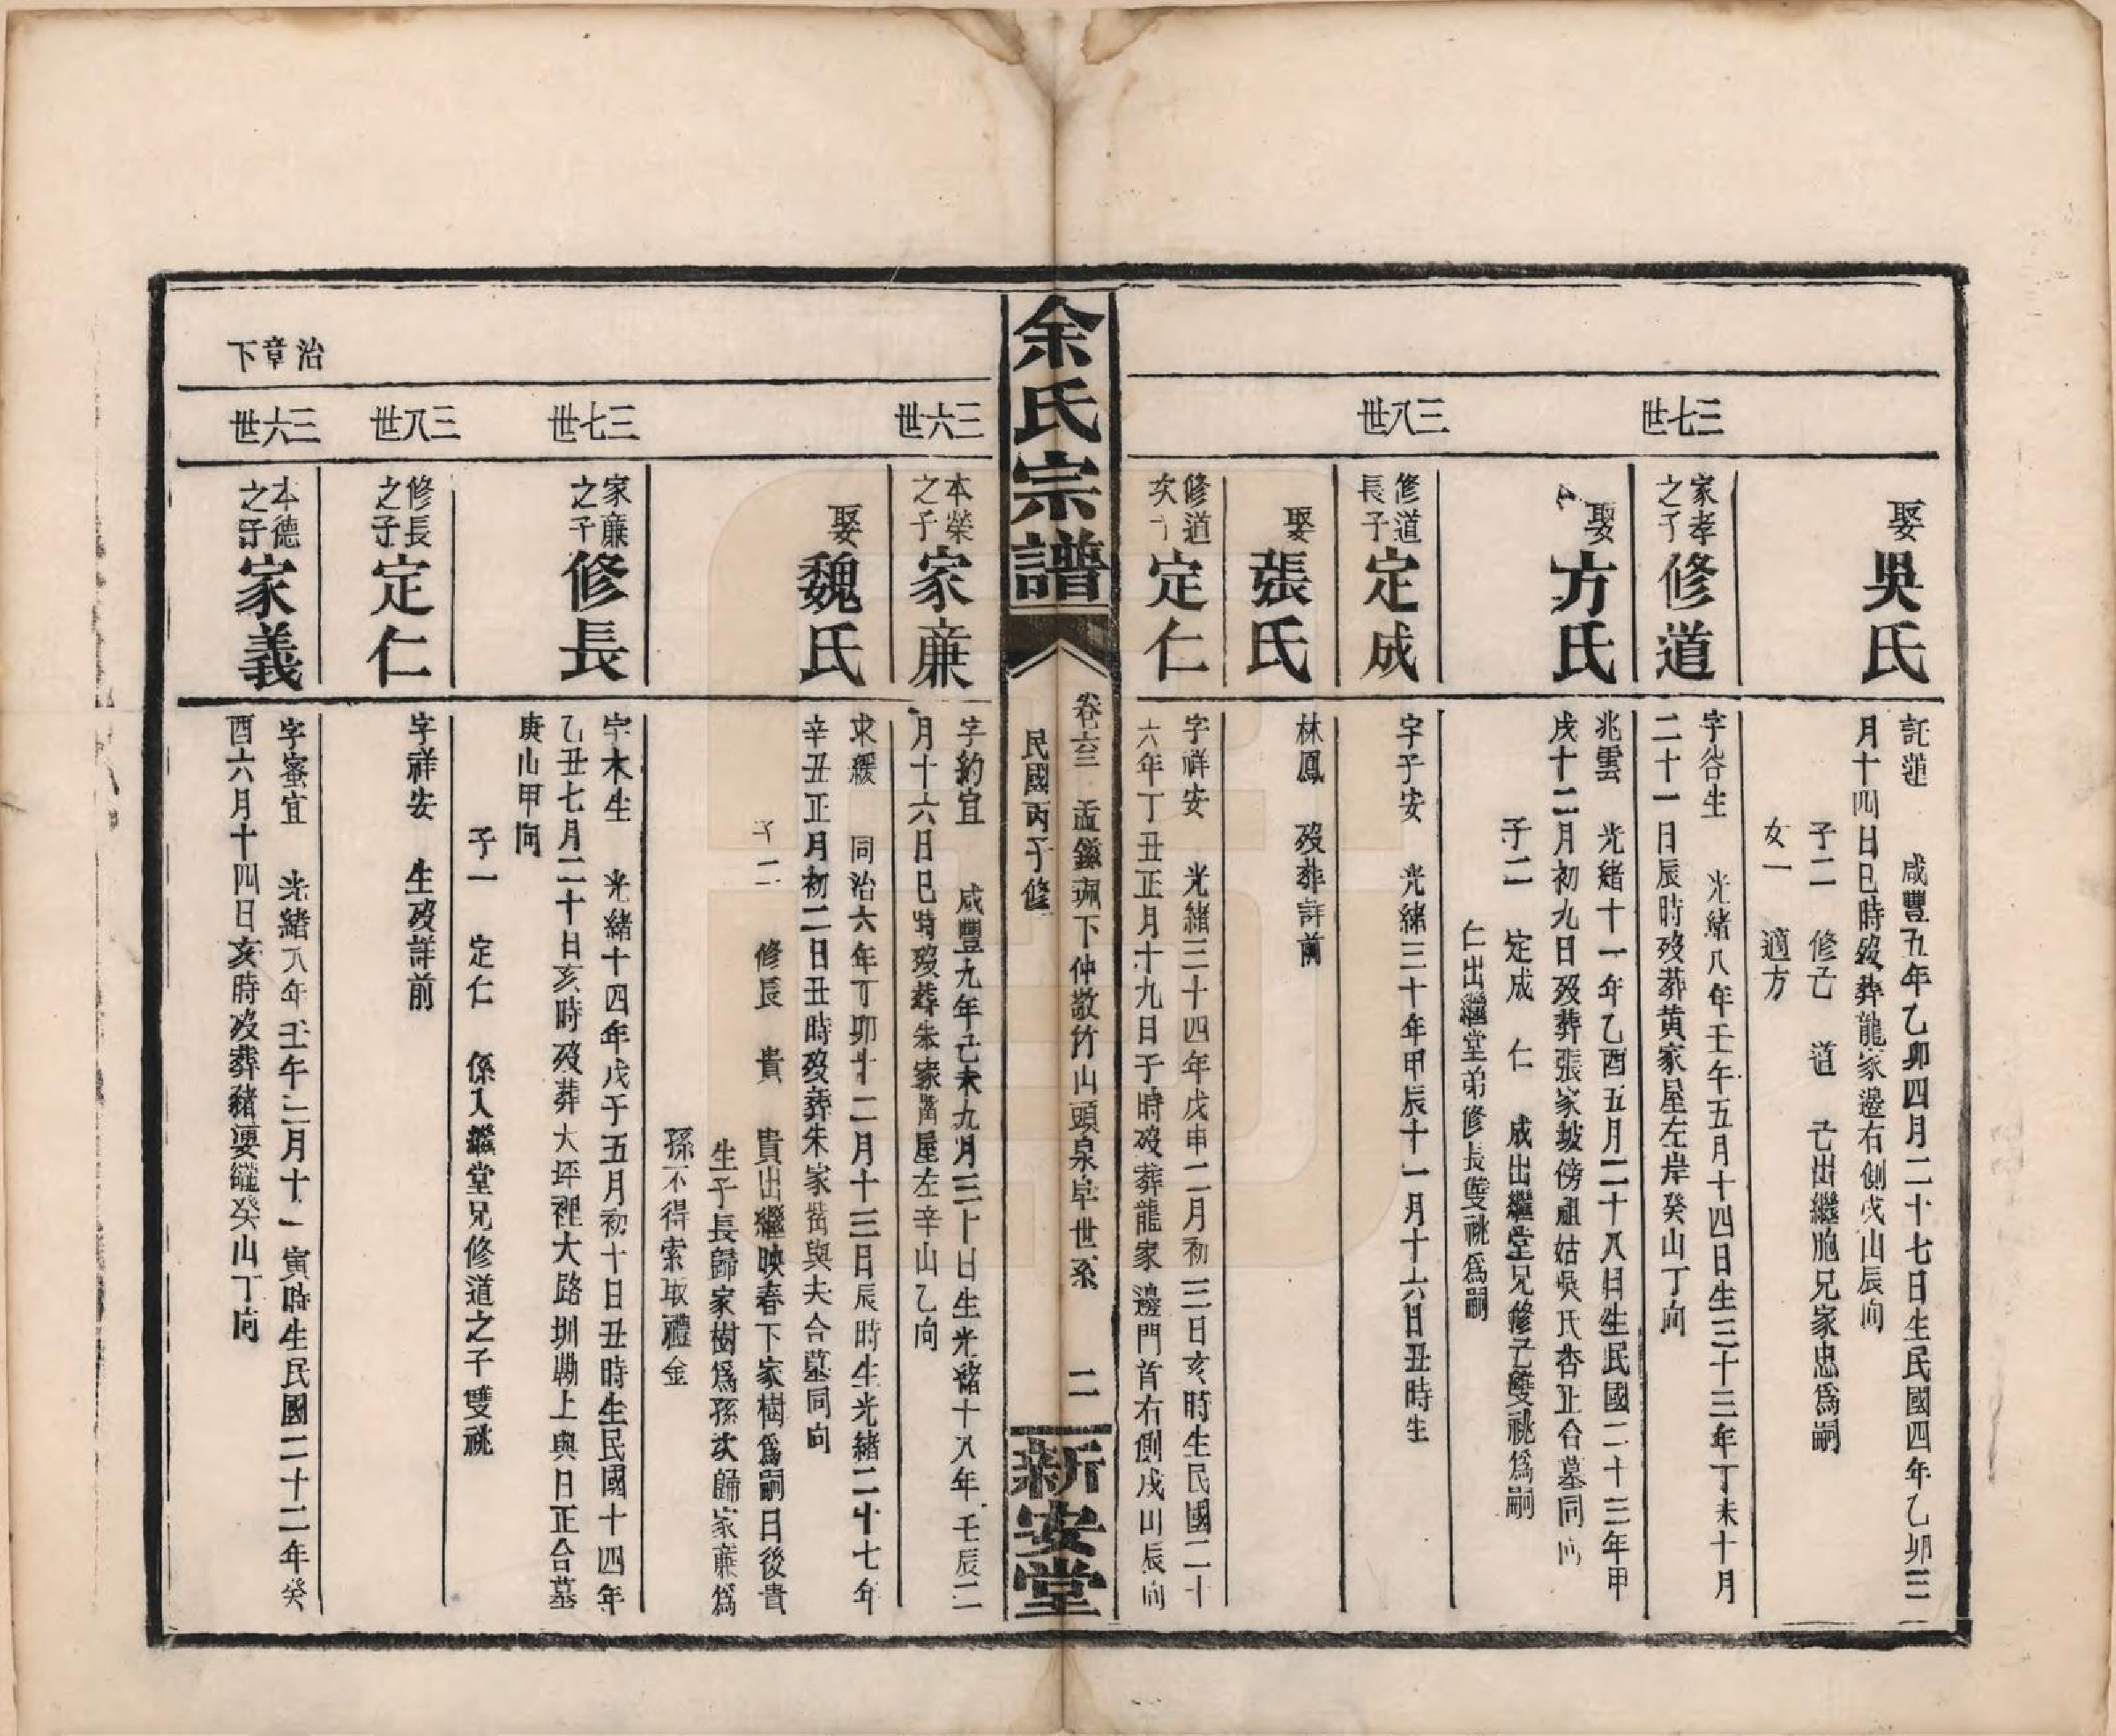 娶吳氏
託蓮 咸豐五年乙卯四月二十七日生民國四年乙卯三
月十四日巳時歿葬龍家邊右側戌山辰向
子二 修己 道 己出繼胞兄家忠爲嗣
女一 適方
三七世
家孝之子修道
字谷生 光緒八年壬午五月十四日生三十三年丁未十月
二十一日辰時歿葬黄家屋左岸癸山丁向
娶方氏
兆雲 光緒十一年乙酉五月二十八日生民國二十三年甲
戌十二月初九日歿葬張家坡傍祖姑吳氏杏正合墓同向
子二 定成 仁 成出繼堂兄修己雙祧爲嗣
仁出繼堂弟修長雙祧爲嗣
三八世
修道長子定成
字子安 光緒三十年甲辰十一月十六日丑時生
娶張氏
林鳳 歿葬詳前
修道次子定仁
字祥安 光緒三十四年戊申二月初三日亥時生民國二十
六年丁丑正月十九日子時歿葬龍家邊門首右側戌山辰向
余氏宗譜
卷六三 孟鎡珮下仲敬竹山頭泉阜世系 二
民國丙子修
新安堂
三六世
本榮之子家廉
字約宜 咸豐九年己未九月三十日生光緒十八年壬辰二
月十六日巳時歿葬朱家嵩屋左辛山乙向
娶魏氏
求緩 同治六年丁卯十二月十三日辰時生光緒二十七年
辛丑正月初二日丑時歿葬朱家嵩與夫合墓同向
子二 修長 貴 貴出繼映春下家樹爲嗣日後貴
生子長歸家樹爲孫次歸家廉爲
孫不得索取禮金
三七世
家廉之子修長
字木生 光緒十四年戊子五月初十日丑時生民國十四年
乙丑七月二十日亥時歿葬大坪裡大路圳塝上與日正合墓
庚山甲向
子一 定仁 係入繼堂兄修道之子雙祧
三八世
修長之子定仁
字祥安 生歿詳前
治章下
三六世
本德之子家義
字蜜宜 光緒八年壬午二月十一寅時生民國二十二年癸
酉六月十四日亥時歿葬豬婆癸山丁向